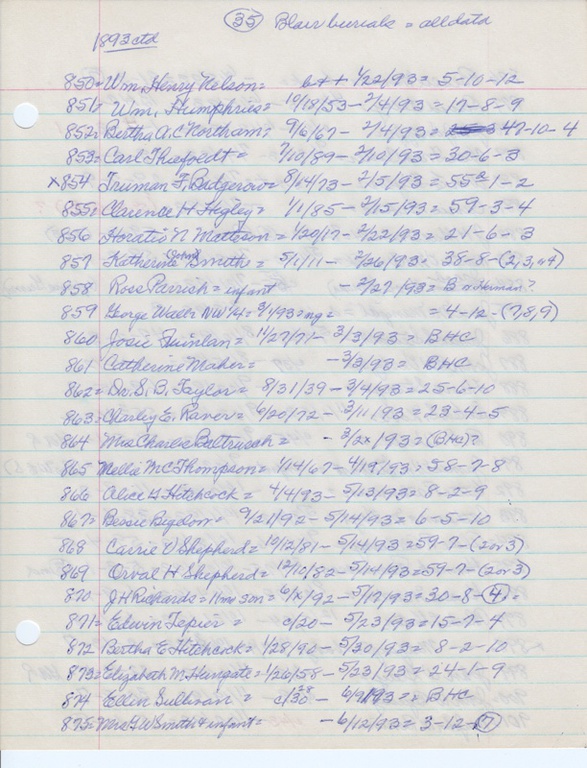 (35) Blair burials = all data
1893 ctd
850 = Wm. Henry Nelson = b++ 1/22/93 = 5-10-12
851 Wm. Humphries = 10/18/53 - 2/4/93 = 17-8-9
852 = Bertha A.C Northam = 9/6/67 - 2/4/93 = 47-10-4
853 = Carl = 7/10/89 - 2/10/93 = 30-6-3
x854 Truman F. Badgerow = 8/14/73 - 2/5/93 = 55-1-2
855 = Clarence H Hegley = 1/1/85 - 2/15/93 = 59-3-4
856 Horatio N Matteson = 1/20/17 - 2/22/93 = 21-6-3
857 Katherine Smith = 5/1/11 - 2/26/93 = 38-8-(2,3,+4)
858 Rose Parrish = infant - 2/27/93 = B n. Herman?
859 George Weller NW 1/4 = 3/1/93 = ng = = 4-12-(7,8,9)
860 Josie Quinlan = 11/27/71 - 3/3/93 = BHC
861 Catherine Maher = - 3/3/93 = BHC
862 = Dr. S. B. Taylor = 8/31/39 - 3/4/93 = 25-6-10
863 = Charley E. Raver = 6/20/72 - 3/11/93 = 23-4-5
864 Mrs Charles Baltrusah = - 3/2x/93 = (BHC)?
865 Mella M C Thompson = 1/14/67 - 4/19/93 = 58-7-8
866 Alice G Hitchcock = 4/4/93 - 5/13/93 = 8-2-9
867 = Bessie Bigdon = 9/21/92 - 5/14/93 = 6-5-10
868 Carrie V Shepherd = 10/12/81 - 5/14/93 = 59-7-(2or3)
869 Orval H Shepherd = 12/10/82 - 5/14/93 = 59-7-(2or3)
870 J.H Richards = 11mo son = 6/x/92 - 5/17/93 = 30-8-(4) =
871 = Edwin Tepier = c/20 - 5/23/93 = 15-7-4
872 Bertha E Hitchcock = 1/28/90 - 5/30/93 = 8-2-10
873 = Elizabeth M. Hungate = 1/26/58 - 5/23/93 = 24-1-9
874 Ellen Sullivan = c/30 - 6/9/93 = BHC
875 = Mrs G W Smith + infant = - 6/12/93 = 3-12-(7)